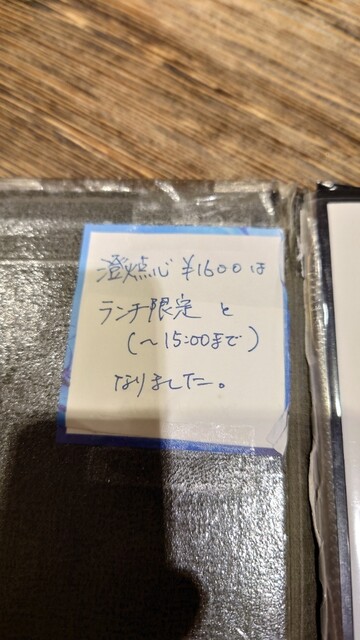 澄点心 ¥1600は
ランチ限定 と
(～15:00まで)
なりました。